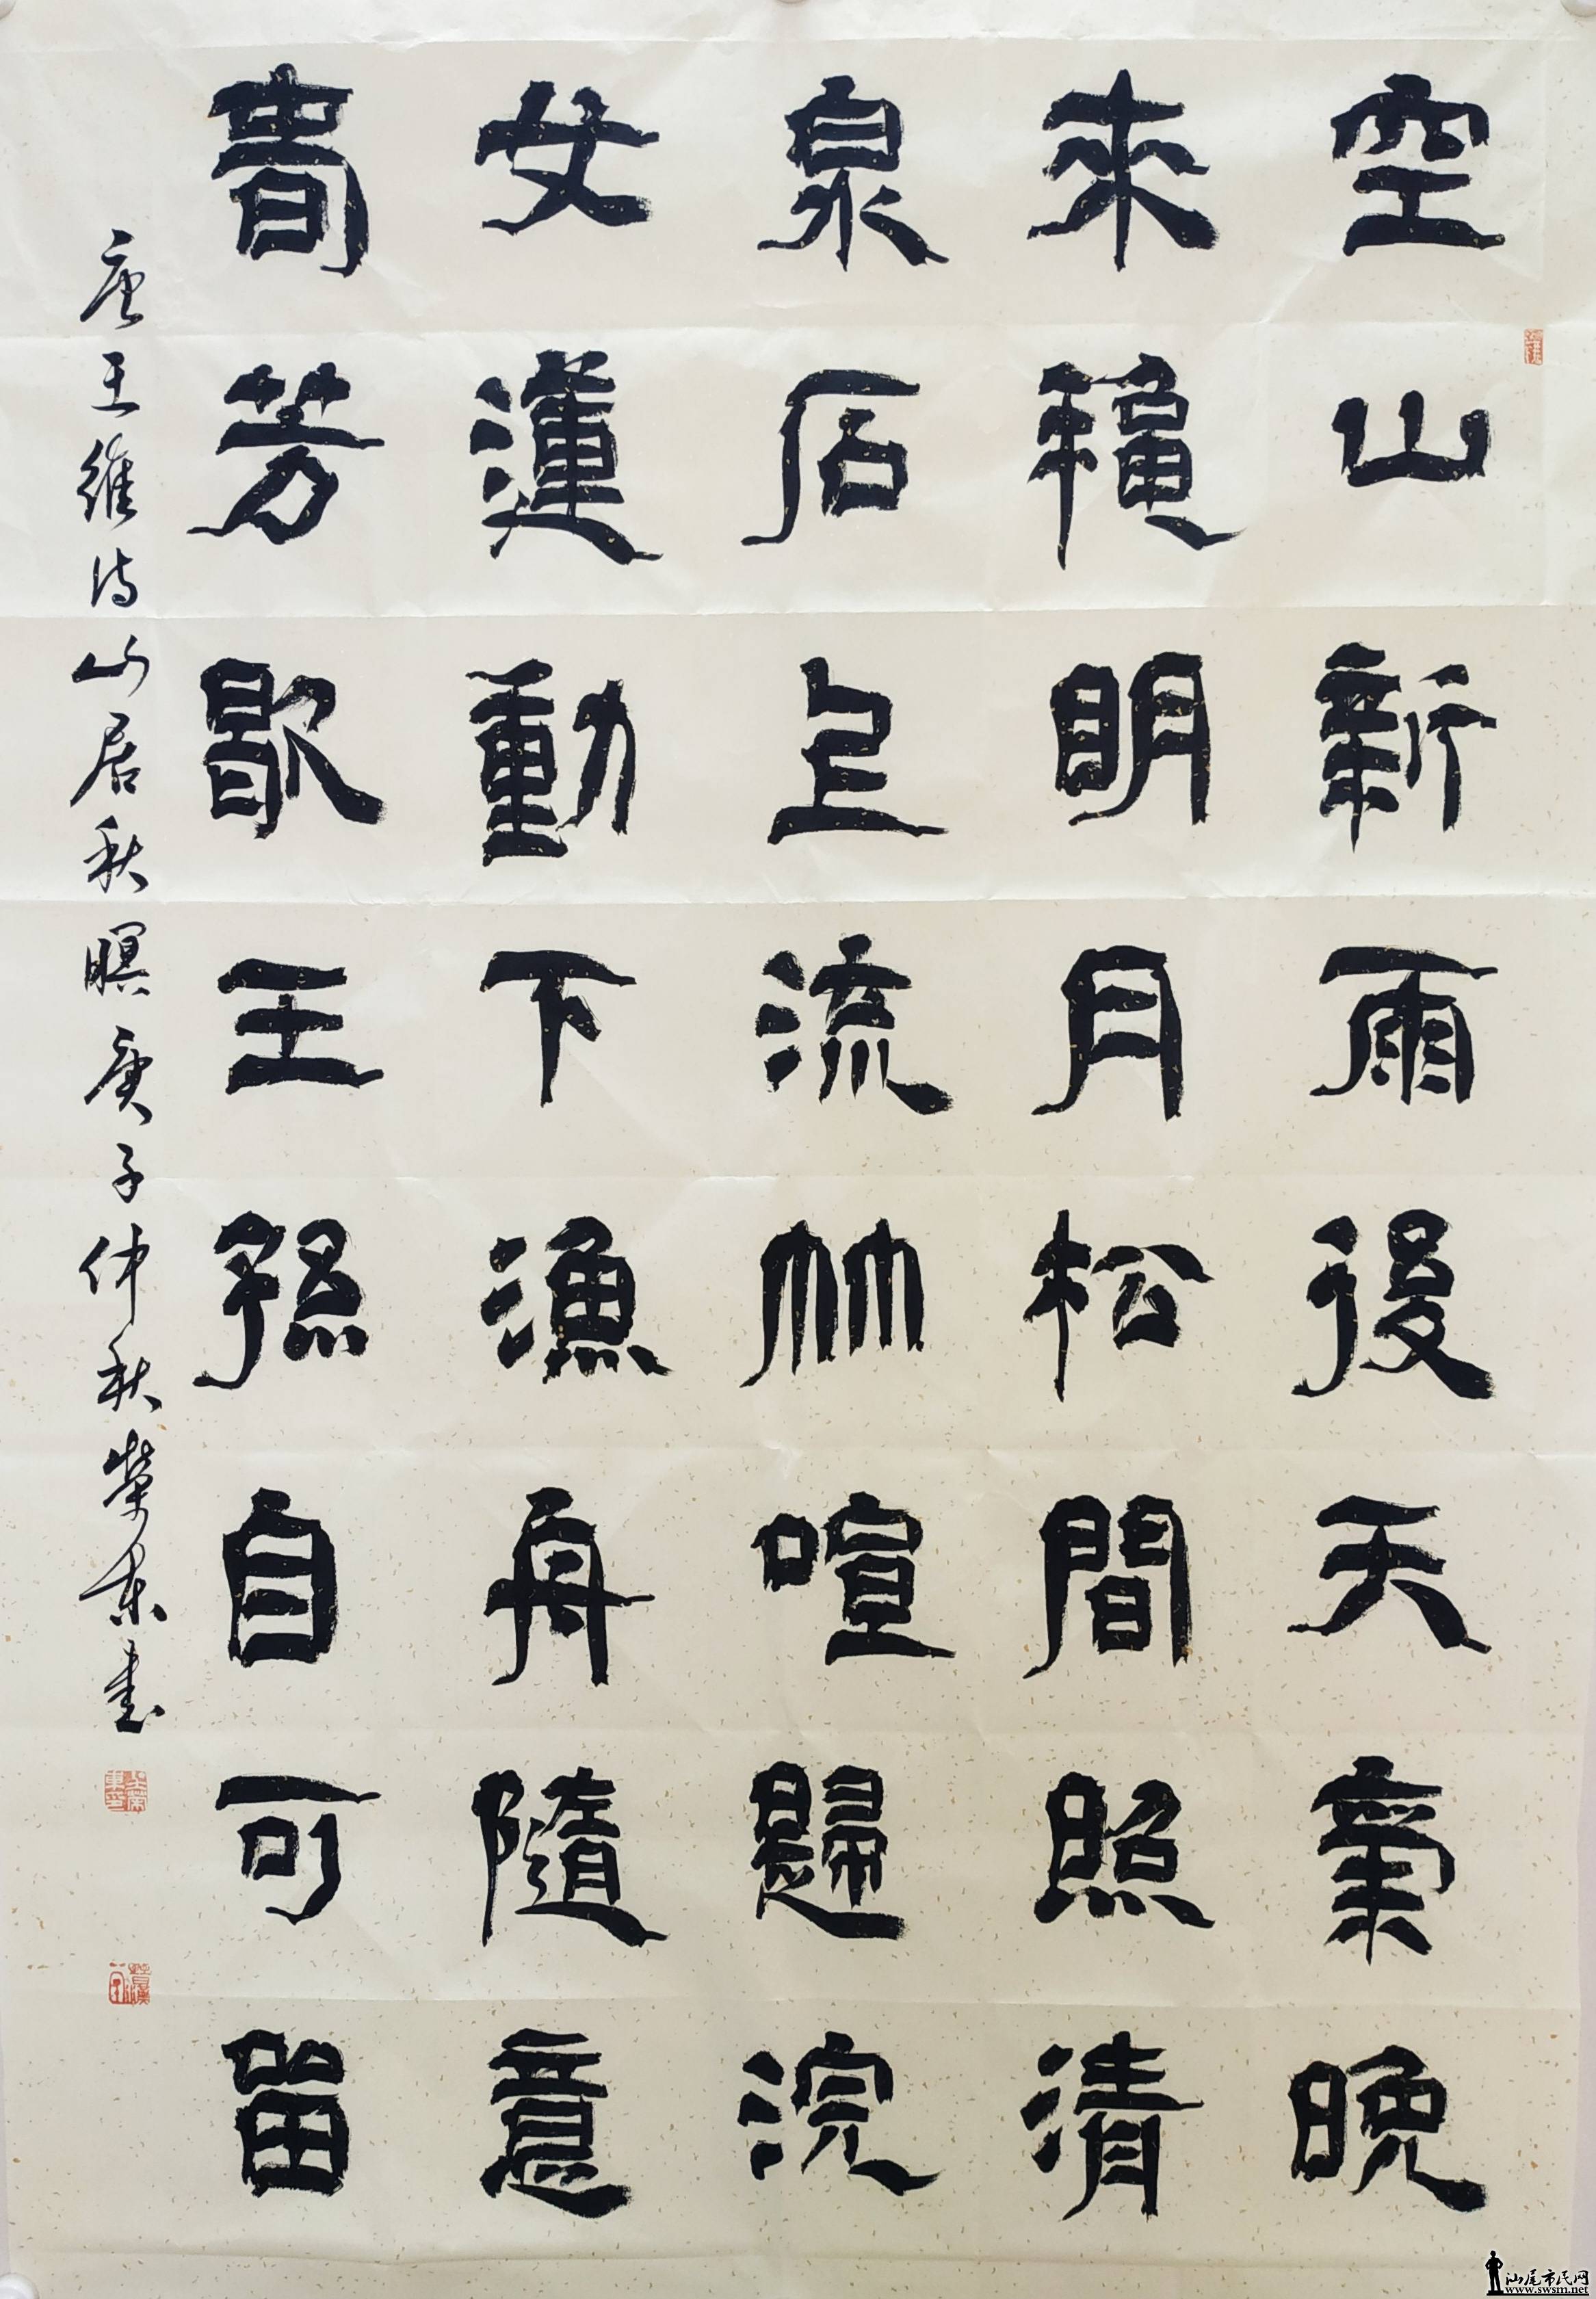 空山新雨後天氣晚
來穐明月松間照清
泉石上流竹喧歸浣
女蓮動下漁舟隨意
春芳歇王孫自可留
唐王維詩山居秋暝庚子仲秋榮東書
汕尾市民网
www.swsm.net